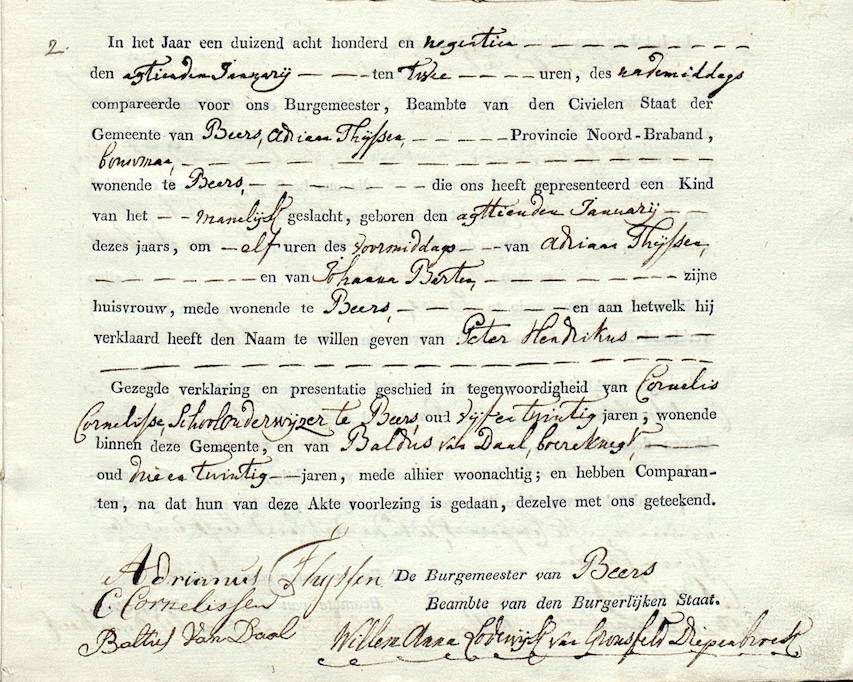 2. In het Jaar een duizend acht honderd en negentien
den agtienden Januarij ten twee uren, des nademiddags
compareerde voor ons Burgemeester, Beambte van den Civielen Staat der
Gemeente van Beers, Adriaan Thijssen, Provincie Noord-Braband,
bouwman,
wonende te Beers, die ons heeft gepresenteerd een Kind
van het manelijk geslacht, geboren den agttienden Januarij
dezes jaars, om elf uren des voormiddags van Adriaan Thijssen,
en van Johanna Barten, zijne
huisvrouw, mede wonende te Beers, en aan hetwelk hij
verklaard heeft den Naam te willen geven van Peter Hendrikus
Gezegde verklaring en presentatie geschied in tegenwoordigheid van Cornelis
Cornelisse, Schoolonderwijzer te Beers, oud vijf en twintig jaren, wonende
binnen deze Gemeente, en van Baldus van Daal, boereknegt,
oud drie en twintig jaren, mede alhier woonachtig; en hebben Comparan-
ten, na dat hun van deze Akte voorlezing is gedaan, dezelve met ons geteekend.
Adrianus Thyssen De Burgemeester van Beers
C Cornelissen Beambte van den Burgerlijken Staat.
Baltus Van Daal Willem Anna Lodewijk van Gronsfeld Diepenbroek